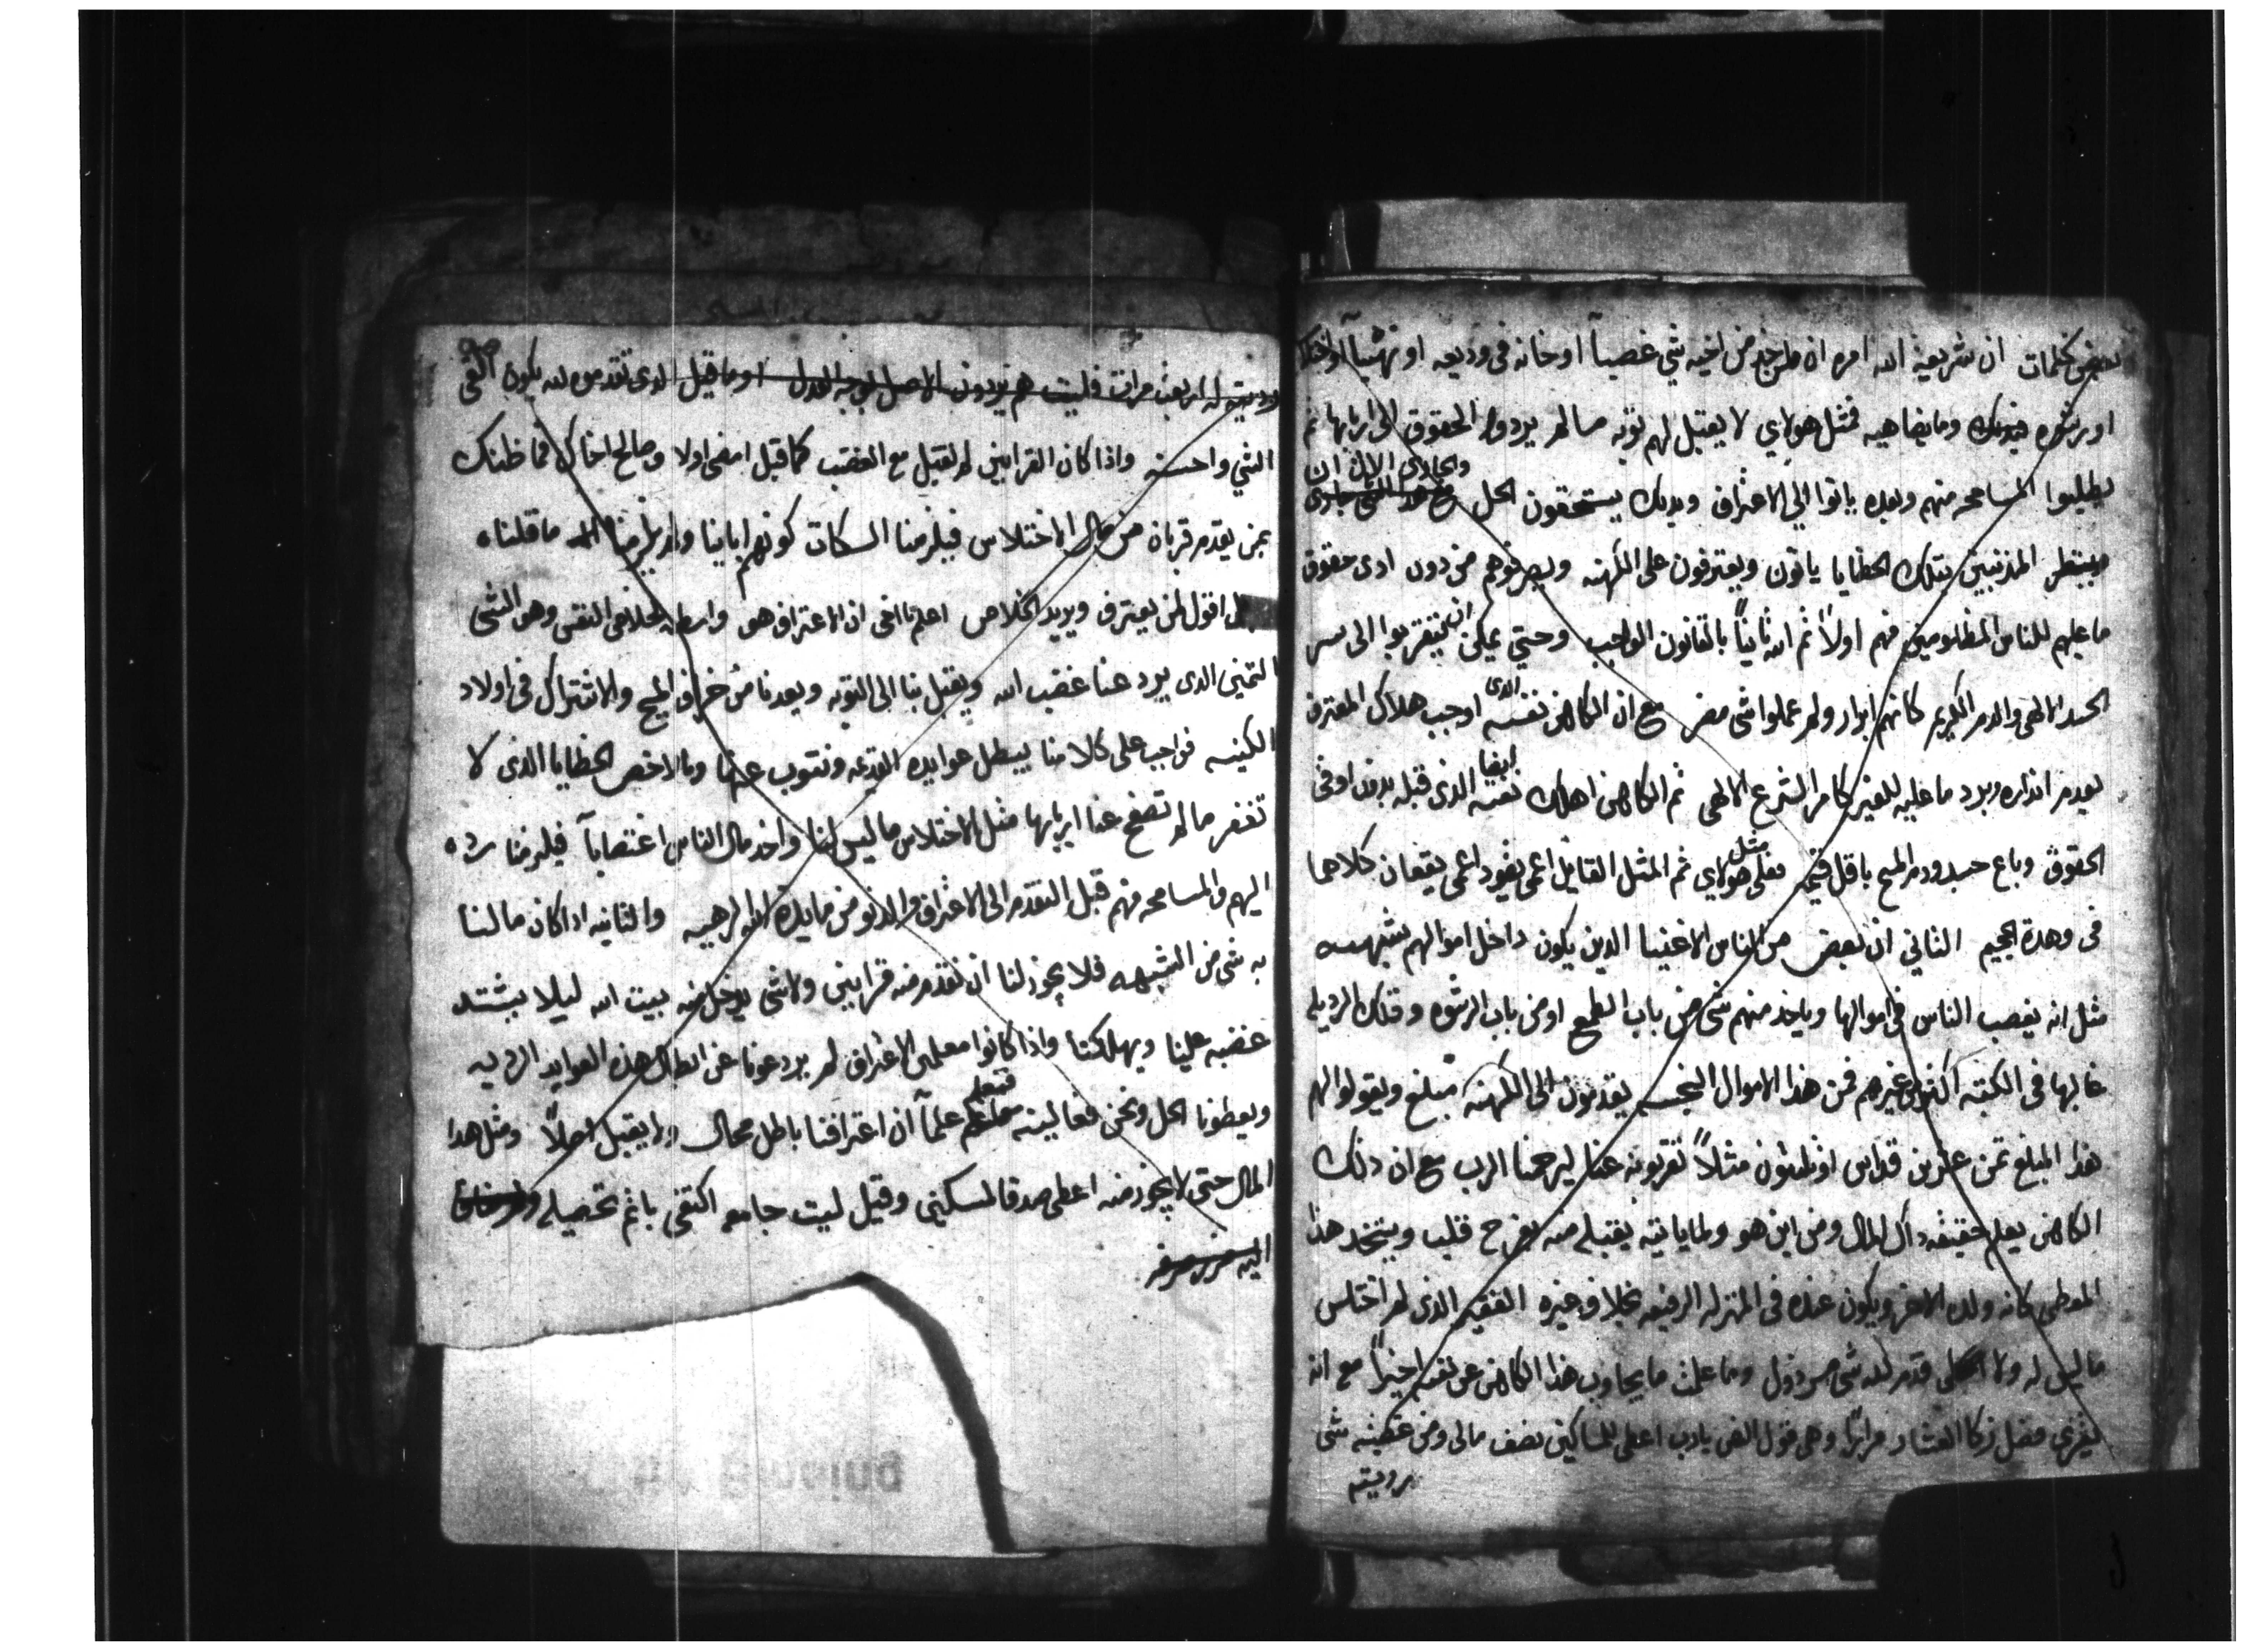 بعض كلمات ان شريعة الله امره ان من اخيه شي غصباً او خانه في وديعه او
او برشوه وما يضاهيه فمثل هولاي لا يقبل لهم توبه ما لم يردوا الحقوق الى اربابها ثم
يطلبوا المسامحه منهم وبعده ياتوا الي الاعتراف وبدلك يستحقون الحل والجاري الان ان
المذنبين بتلك الخطايا ياتون ويعترفون على الكهنه ويصرفوهم من دون ادى حقوق
ما عليهم للناس المظلومين منهم اولاً ثم لله ثانياً بالقانون الواجب وحتي يمكن ان يتقربوا الى سر
الجسد الالهي والدم الكريم كانهم ابرار ولم عملوا شي مضر مع ان الكاهن نفسه الدى اوجب هلاك المعترف
لعدم انداره ويرد ما عليه للغير كامر الشرع الالهي ثم الكاهن اهلك نفسه ايضا الذى قبله بدون اوفى
الحقوق وباع جسد ودم المسيح باقل فعلى مثل هولاي تم المثل القايل اعمى يقود اعمى يقعان كلاهما
فى وهدة الجحيم الثاني ان بعض من الناس الاغنيا الدين يكون داخل اموالهم شبهه
مثل انه يغصب الناس في اموالها وياخد منهم شي من باب الطمع او من باب الرشوه وتلك الرديله
غالبها فى الكتبه اكثر من غيرهم فمن هذا الاموال النجسه يقدمون الى الكهنه مبلغ ويقولوا لهم
هذا المبلغ تمن عشرين قداس او ثلثون مثلاً تقربونه عنا ليرحمنا الرب مع ان دلك
الكاهن يعلم حقيقة داك المال ومن اين هو ولما ياتيه يقبله منه بفرح قلب ويتخد هذا
المعطى كانه ولده الاعز ويكون عنده فى المنزله الرفيعه بخلاف غيره الفقير الذى لم اختلس
ما ليس له ولا قدم لله شي مردول وما علمت ما يجاوب هذا الكاهن عن نفسه اخيراً مع انه
فضل زكا العشار مراراً وهى قول الهى يارب اعطى للمساكين نصف مالى ومن غصبته شى
برديته
له اربعة مرات فليت هم يردون الاصل اوما قيل الدى تقدموه لله يكون انقى
الشي واحسنه واذا كان القرابين لم تقبل مع الغضب كما قيل امضى اولا وصالح اخاك فما ظنك
بمن يقدم قربان من مال الاختلاس فيلزمنا السكات كونهم ابائنا ما قلناه
اقول لمن يعترف ويريد الخلاص اعلم يا اخى ان الاعتراف هو واسطه لخلاص النفس وهو الشى
الثمين الدى يرد عنا غضب الله ويقبل بنا الى التوبه ويعدنا من خراف المسيح والاشتراك فى اولاد
الكنيسه فواجب على كلا منا يبطل عوايده القديمه ونتوب عنها وبالاخص الخطايا الذى لا
تغفر ما لم تصفح عنا اربابها مثل الاختلاس ما ليس لنا واخد مال الناس اغتصاباً فيلزمنا رده
اليهم والمسامحه منهم قبل التقدم الى الاعتراف والدنو من مايدة الالهيه والثانيه ادا كان مالنا
به شى من الشبهه فلا يجوز لنا ان نقدم منه قرابين ولا شى يدخل منه بيت الله ليلا يشتد
غضبه علينا ويهلكنا واذا كانوا معلمى الاعتراف لم يردعونا عن ابطال هذه العوايد الرديه
ويعطونا الحل ونحن فعالينه فنعلم علماً ان اعترافنا باطل محال ولا يقبل اصلاً ومثل هدا
المال حتى لا يجوز منه اعطى صدقا لمسكين وقيل ليت جامعه اكتفى باثم تحصيله